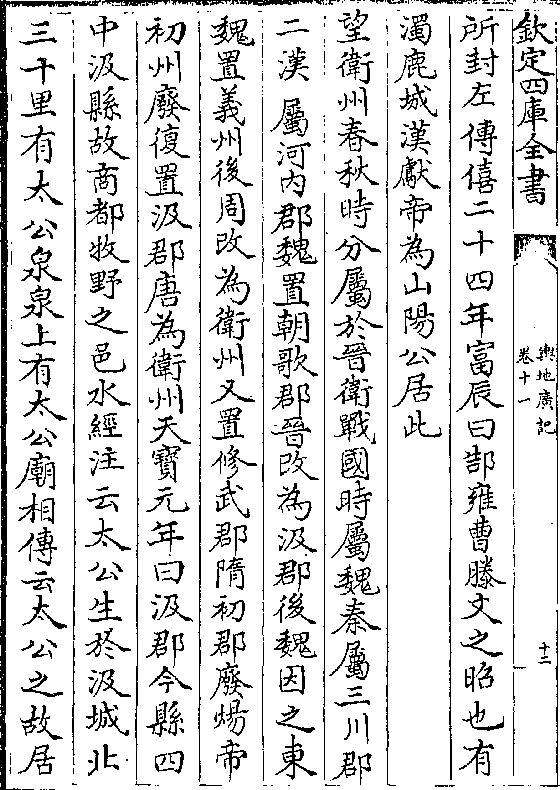 欽定四庫全書
輿地廣記
卷十一
十二
所封左傳僖二十四年富辰曰郜雍曹滕文之昭也有
濁鹿城漢獻帝為山陽公居此
望衛州春秋時分屬於晉衛戰國時屬魏秦屬三川郡
二漢屬河内郡魏置朝歌郡晉改為汲郡後魏因之東
魏置義州後周改為衛州又置修武郡隋初郡廢煬帝
初州廢復置汲郡唐為衛州天寶元年曰汲郡今縣四
中汲縣故商都牧野之邑水經注云太公生於汲城北
三十里有太公泉泉上有太公廟相傳云太公之故居